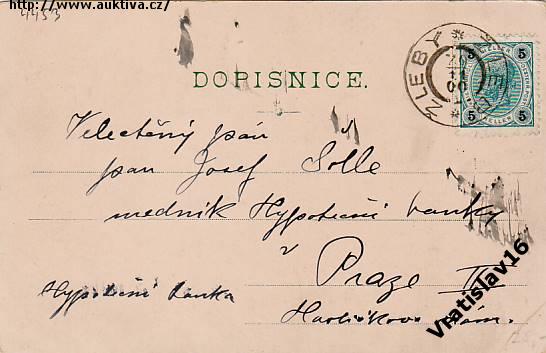 http://www.auktiva.cz/
4453
DOPISNICE.
ŽLEBY
5 5
5 5
Velectěný pán
pan Josef Solle
úředník Hypoteční banky
v
Praze II
Hypoteční banka
Havlíčkovo nám.
Vratislav16